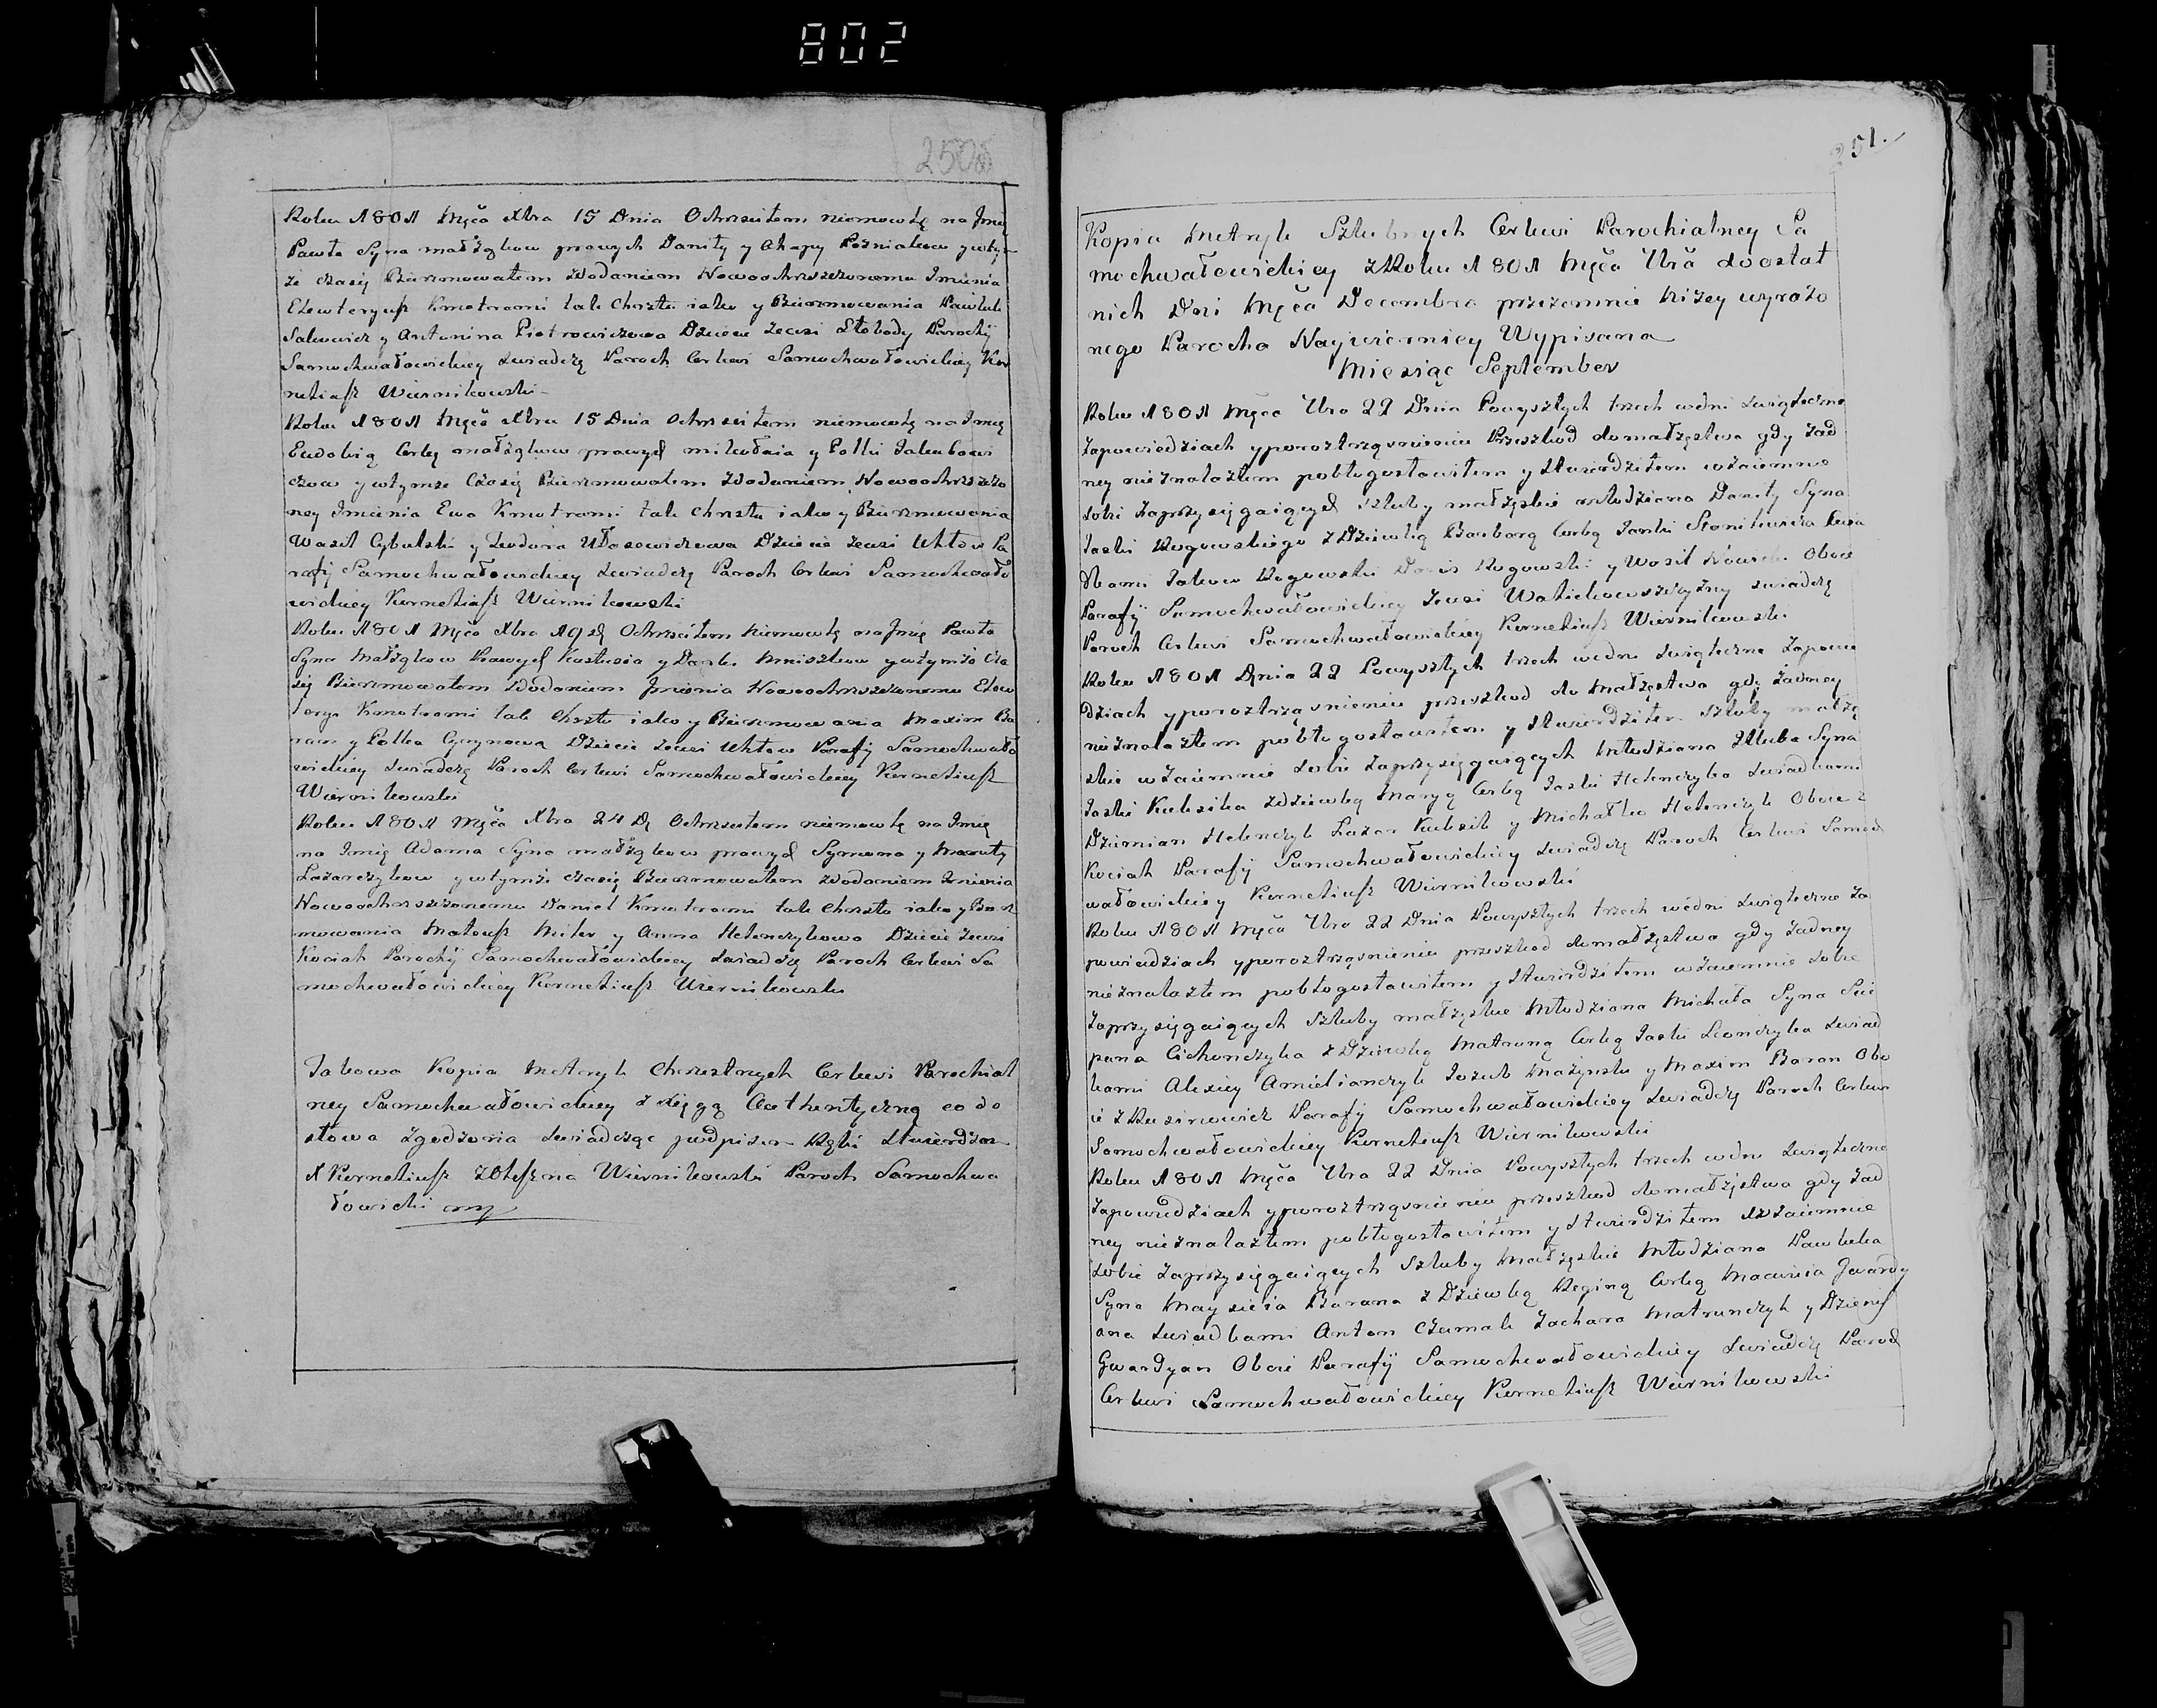 802
250
Roku 1801 Msča Xbra 15 Dnia Ochrzciłem niemowlę na Imie
Pawła Syna małżąkow prawych Daniły y Ahapy Poźniakow ywtym
że czasię Bierzmowałem zdodaniem Nowoochrzczonemu Imienia
Elewteryusz Kmotrami tak Chrztu iako y Bierzmowania Pawluk
Salwowicz y Antonina Piotrowiczowa Dziecie zewsi Słobody Parochÿ
Samochwałowickiey swiadczę Paroch Cerkwi Samochwałowickiey Kor
neliusz Wiernikowski
Roku 1801 Msča Xbra 15 Dnia Ochrzciłem niemowlę na Imię
Eudokią Corkę małżąkow prawych Mikołaia y Połki Jakubowi
czow y wtymże Czasię Bierzmowałem zdodaniem Nowoochrzczo
ney Imienia Ewa Kmotrami tak Chrztu iako y Bierzmowania
Wasil Cybulski y Teodora Ułasowiczowa Dziecie zewsi Uhłow Pa
rafÿ Samochwałowickiey swiadczę Paroch Cerkwi Samochwało
wickiey Korneliusz Wiernikowski
Roku 1801 Msča Xbra 19 dą Ochrzciłem Niemowlę na Imię Pawła
Syna Małżąkow Prawych Kastusia y Mniszkow ywtymże Cza
się Bierzmowałem zdodaniem Imienia Nowoochrzczonemu Elew
terya Kmotrami tak Chrztu iako y Bierzmowania Maxim Ba
ran y Połka Cyrynowa Dziecie zewsi Uhłow Parafÿ Samochwało
wickiey swiadczę Paroch Cerkwi Samochwałowickiey Korneliusz
Wiernikowski
Roku 1801 Msča Xbra 24 Dą Ochrzciłem niemowlę na Imię
na Imię Adama Syna małżąkow prawych Symona y Maruty
Łazarczykow y wtymże czasię Bierzmowałem zdodaniem Imienia
Nowoochrzczonemu Daniel Kmotrami tak Chrztu iako y Bierz
mowania Mateusz Miler y Anna Helenczykowa Dziecie zewsi
Kociah Parochÿ Samochwałowickiey swiadczę Paroch Cerkwi Sa
mochwałowickiey Korneliusz Wiernikowski
Takowa Kopia Metryk Chrzestnych Cerkwi Parochial
ney Samochwałowickiey z xięgą Authentyczną co do
słowa zgodzona swiadcząc podpisem Ręki stwierdzam
X Korneliusz Wiernikowski Paroch Samochwa
łowicki mp
251.
Kopia Metryk Szlubnych Cerkwi Parochialney Sa
mochwałowickiey z Roku 1801 Msča 7bra do ostat
nich Dni Msča Decembra przezemnie Niżey wyrażo
nego Parocha Naywierniey Wypisana
Miesiąc September
Roku 1801 Msča 7bra 22 Dnia Powyszłych trzech wedni swiąteczne
Zapowiedziach yporoztrząsnieniu Przeszkod domałżęstwa gdy żad
ney nieznalazłem pobłogosławiłem y stwierdziłem wzaiemnie
sobie zaprzysięgaiących szluby małżęskie młodziana Daniły Syna
Jaski Rogowskiego z Dziewką Barbarą Corką Jaski Swia
dkami Jakow Rogowski Rogowski y Wasil Obeci
Parafÿ Samochwałowickiey zewsi swiadczę
Paroch Cerkwi Samochwałowickiey Korneliusz Wiernikowski
Roku 1801 Dnia 22 Powyszłych trzech wedni swiąteczne Zapowie
dziach yporoztrząsnieniu przeszkod do Małżęstwa gdy żadney
nieznalazłem pobłogosławiłem y stwierdziłem szluby małżę
skie wzaiemnie sobie zaprzysięgaiących Młodziana Syna
Jaski Kuksika zdziewką Maryą Corką Jaski Helenczyka swiadkami
Dziemian Helenczyk Łazar Kuksik y Michałko Helenczyk Obeci z
Kociah Parafÿ Samochwałowickiey swiadczę Paroch Cerkwi Samoch
wałowickiey Korneliusz Wiernikowski
Roku 1801 Msča 7bra 22 Dnia Powyszłych trzech wedni swiąteczne Za
powiedziach yporoztrząsnieniu przeszkod domałżęstwa gdy żadney
nieznalazłem pobłogosławiłem y stwierdziłem wzaiemnie sobie
zaprzysięgaiących Szluby małżęskie Młodziana Michała Syna Scie
pana Cichonczyka z Dziewką Matruną Corką Jaski Leonczyka swiad
kami Alexiey Amielianczyk Jozub Mażynski y Maxim Baran Obe
ci z Parafÿ Samochwałowickiey swiadczę Paroch Cerkwi
Samochwałowickiey Korneliusz Wiernikowski
Roku 1801 Msča 7bra 22 Dnia Powyszłych trzech wedni swiąteczne
Zapowiedziach yporoztrząsnieniu przeszkod domałżęstwa gdy żad
ney nieznalazłem pobłogosławiłem y stwierdziłem wzaiemnie
sobie zaprzysięgaiących Szluby Małżęskie Młodziana Pawluka
Syna Maysieia Barana z Dziewką Reginą Corką Macwieia Gwardy
ana swiadkami Anton Czumak Zachara Matrunczyk y Dzienis
Gwardyan Obeci Parafÿ Samochwałowickiey swiadczę Paroch
Cerkwi Samochwałowickiey Korneliusz Wiernikowski